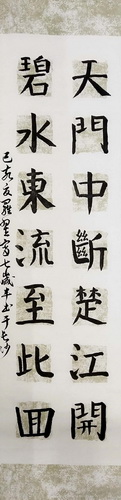 天門中斷楚江開
碧水東流至此回
己亥友羅翌寧七歲半書于長沙